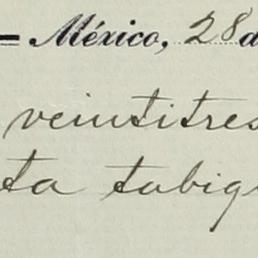 México, 28 d
veintitres
ta tabiq